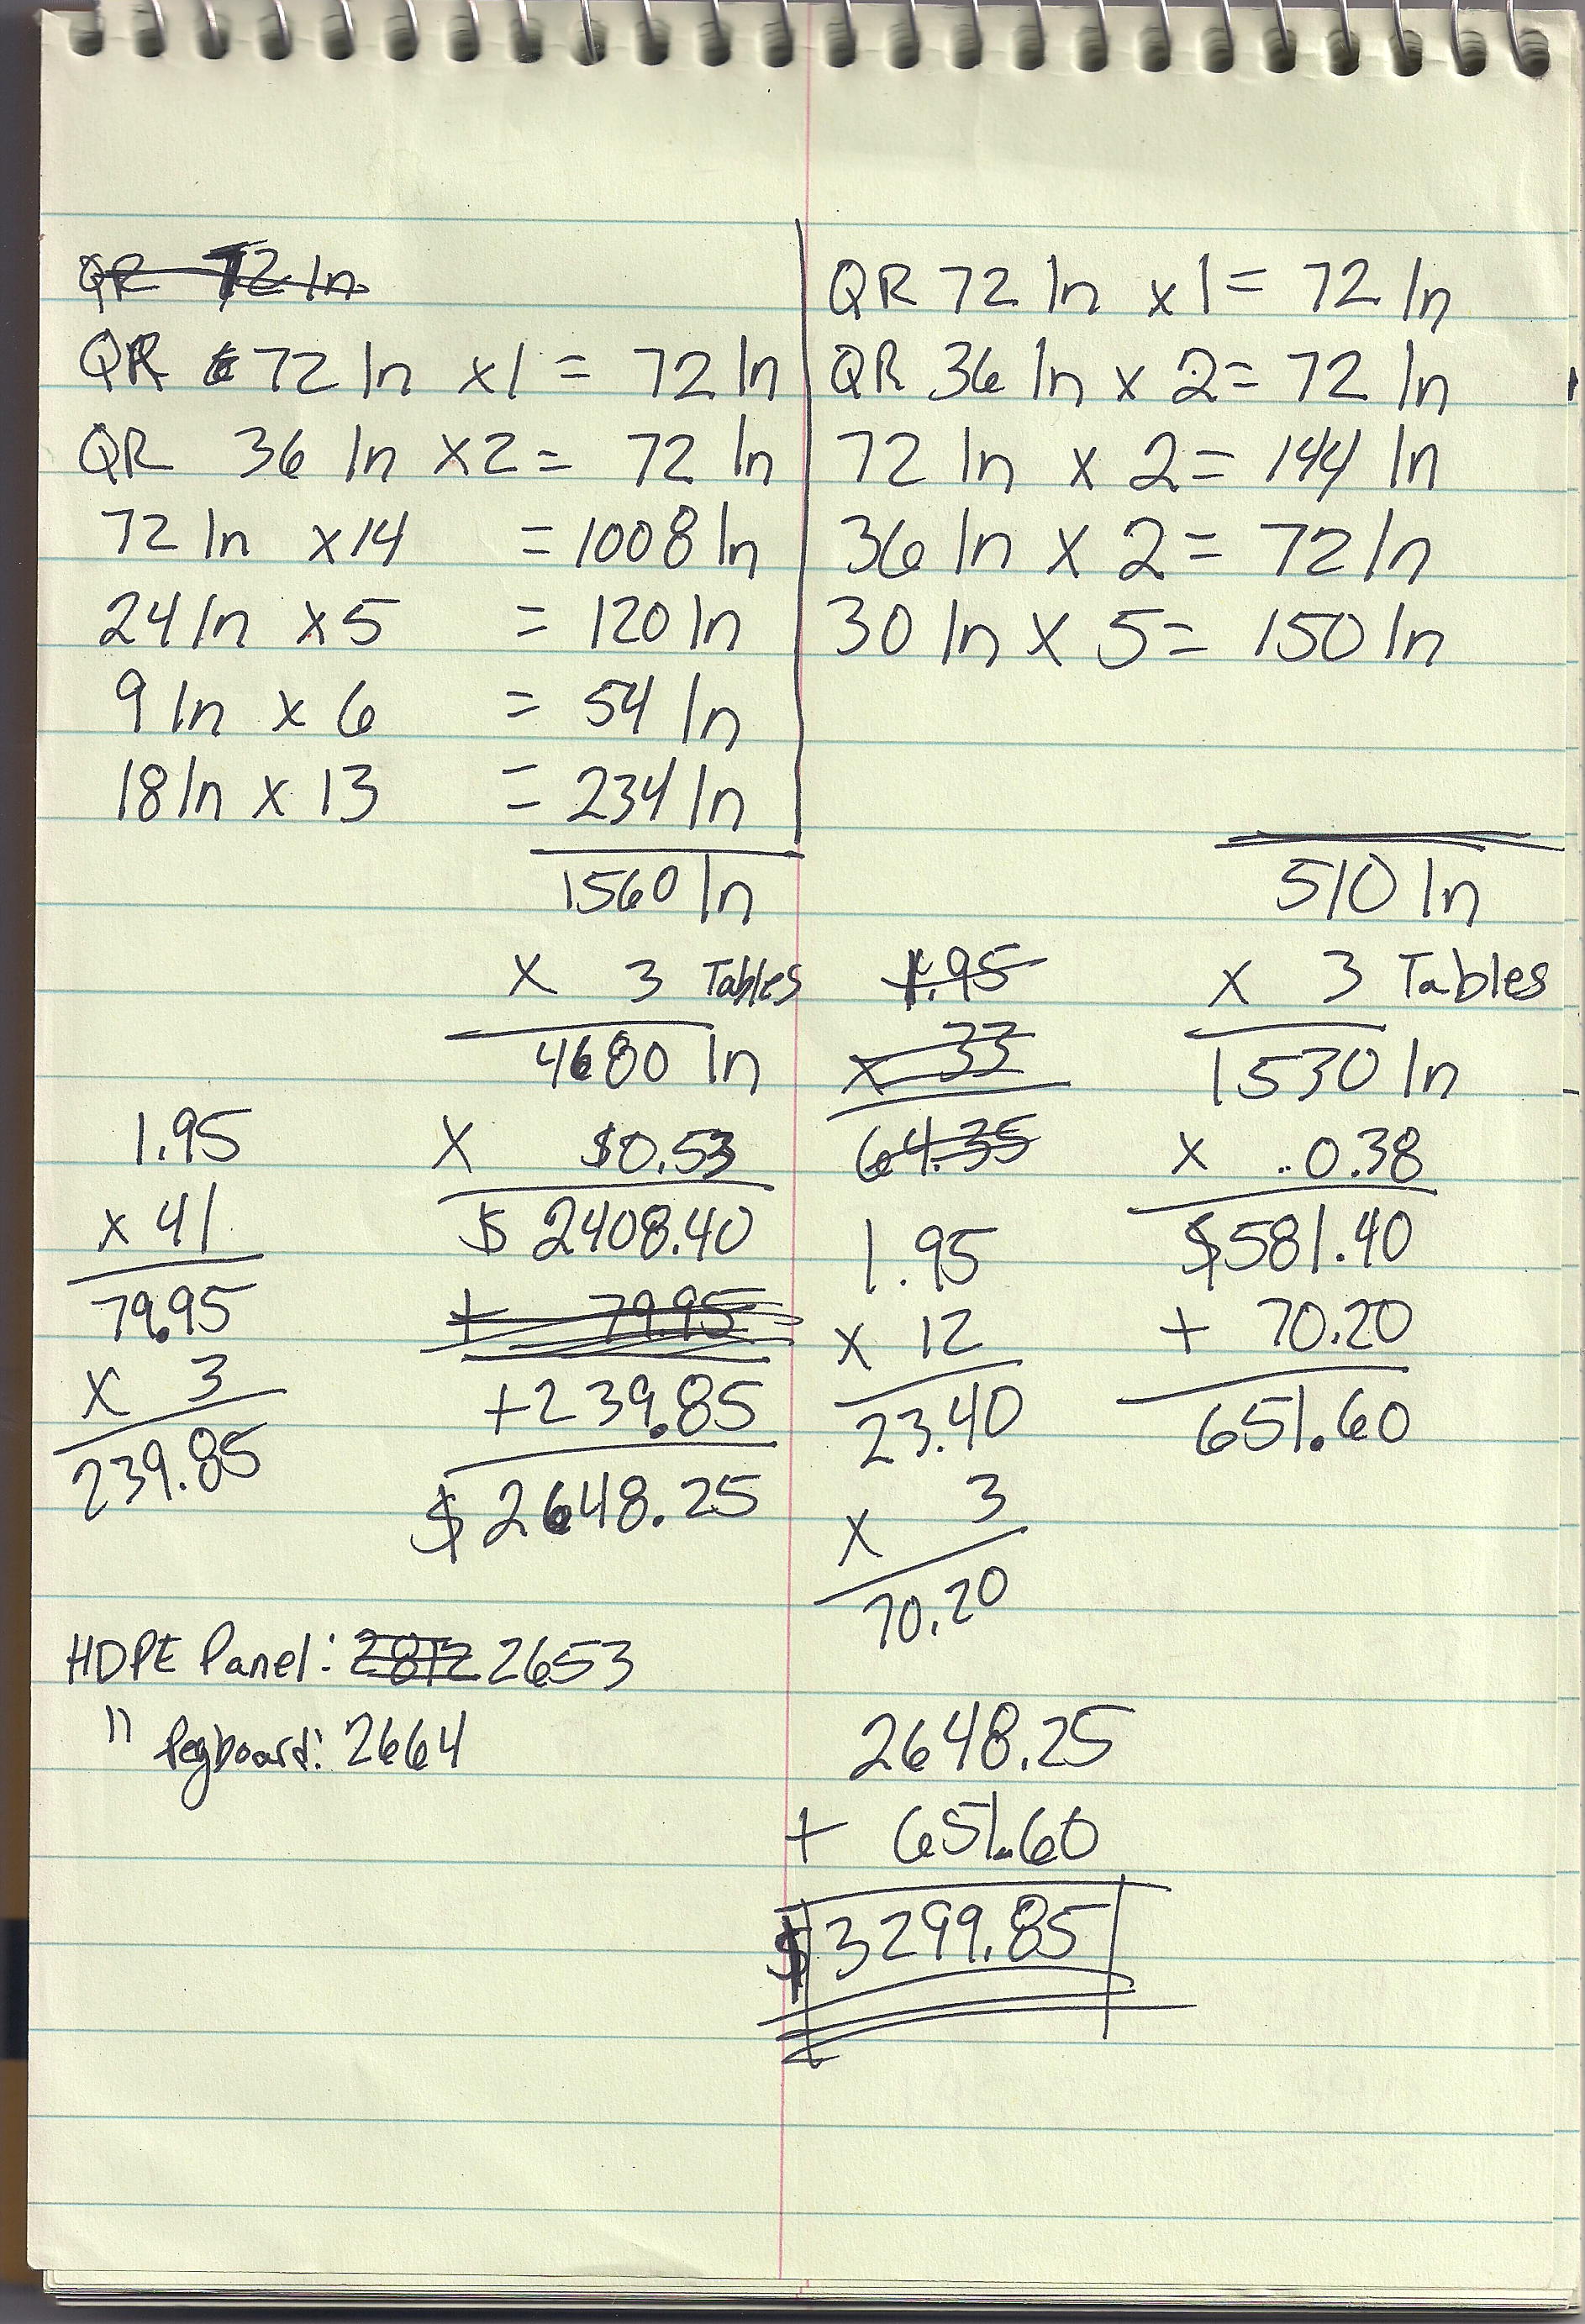 QR 72 In
QR 72 In x1 = 72 In
QR 36 In x2 = 72 In
72 In x14 = 1008 In
24 In x5 = 120 In
9 In x 6 = 54 In
18 In x 13 = 234 In
1560 In
x 3 Tables
4680 In
x $0.53
$ 2408.40
+ 79.95
+239.85
$ 2648.25
1.95
x 41
79.95
x 3
239.85
HDPE Panel: 2812 2653
" Pegboard: 2664
QR 72 In x1 = 72 In
QR 36 In x 2 = 72 In
72 In x 2 = 144 In
36 In x 2 = 72 In
30 In x 5 = 150 In
510 In
x 3 Tables
1530 In
x .0.38
$581.40
+ 70.20
651.60
1.95
x 33
64.35
1.95
x 12
23.40
x 3
70.20
2648.25
+ 651.60
$3299.85